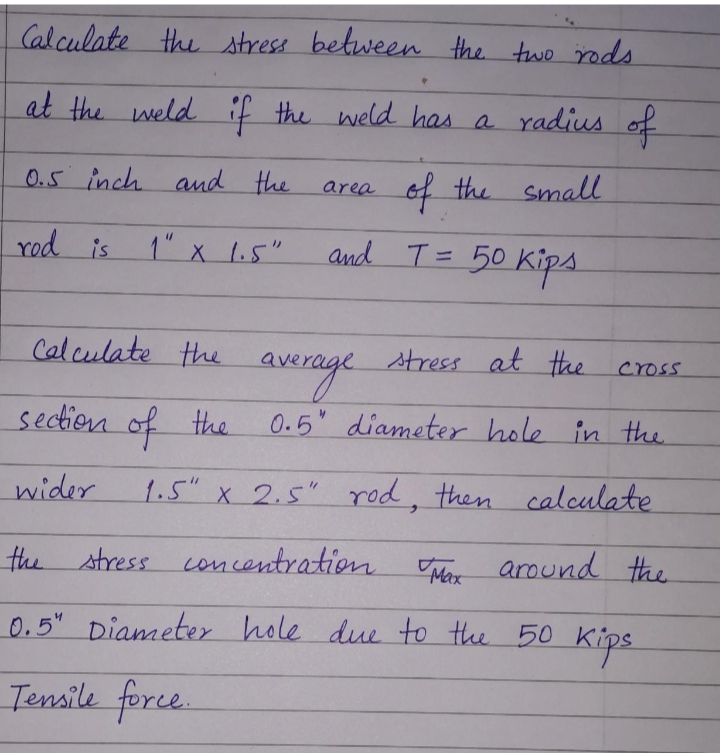 Calculate the stress between the two rods
at the weld if the weld has a radius of
0.5 inch and the area of the small
rod is 1" x 1.5" and T = 50 Kips
Calculate the average stress at the cross
section of the 0.5" diameter hole in the
wider 1.5" x 2.5" rod, then calculate
the stress concentration σMax around the
0.5" Diameter hole due to the 50 Kips
Tensile force.